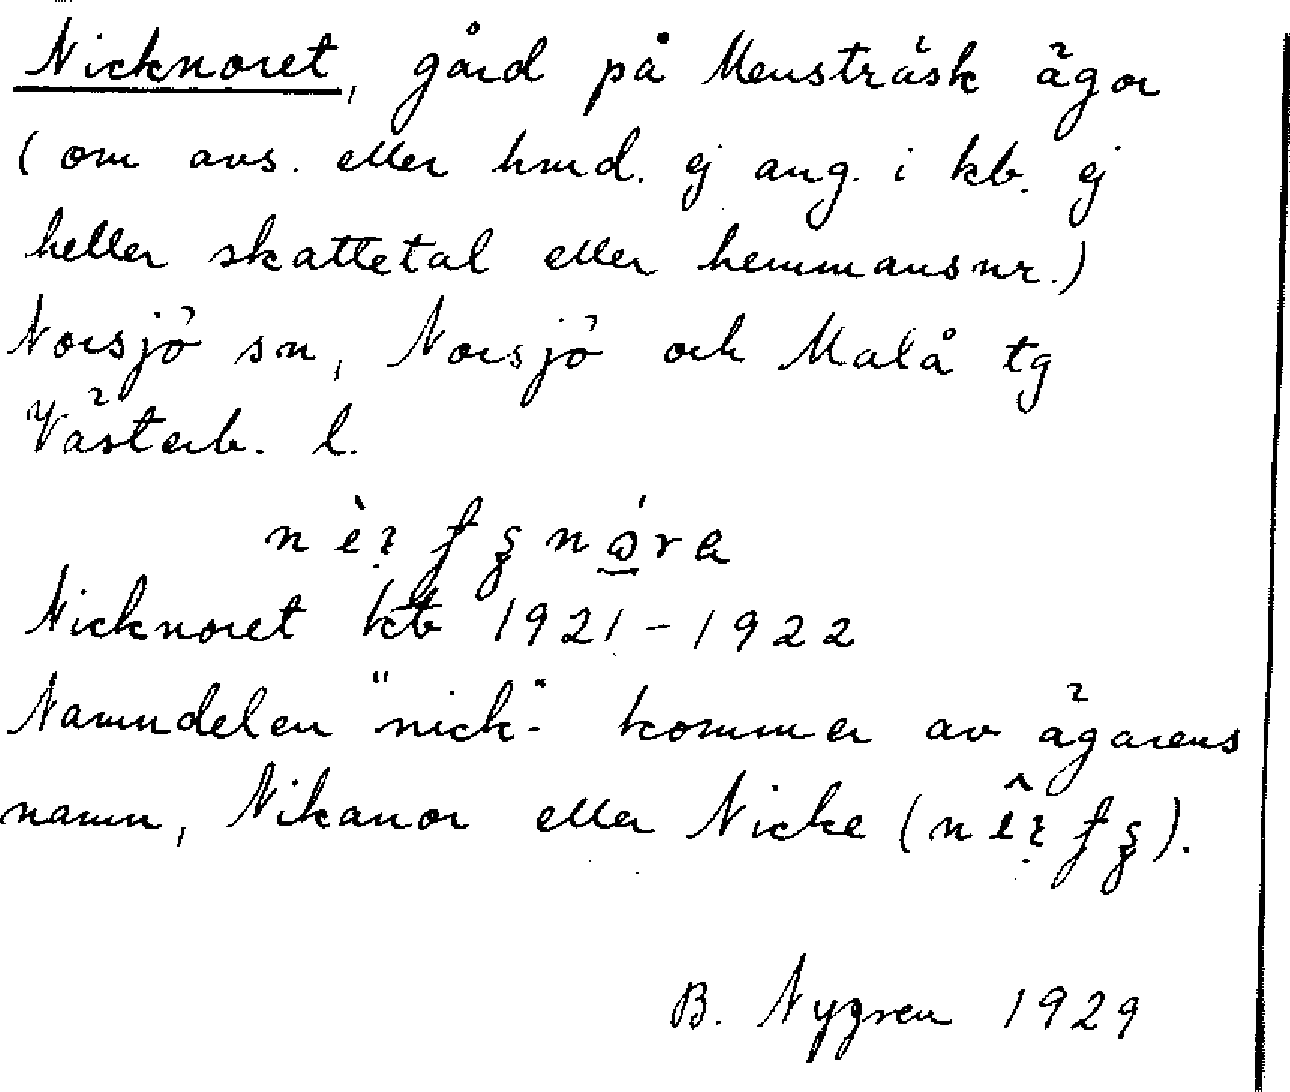 Nicknoret, gård på Mensträsk ägor
(om avs. eller hmd. ej ang. i kb. ej
heller skattetal eller hemmansnr.)
Norsjö sn, Norsjö och Malå tg
Västerb. l.
Nicknoret kb 1921-1922
Namndelen "nick-" kommer av ägarens
namn, Nikanor eller Nicke
B. Nygren 1929